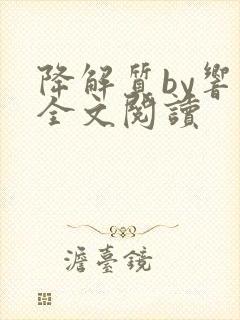 降解質by響
全文閱讀
澹臺鏡